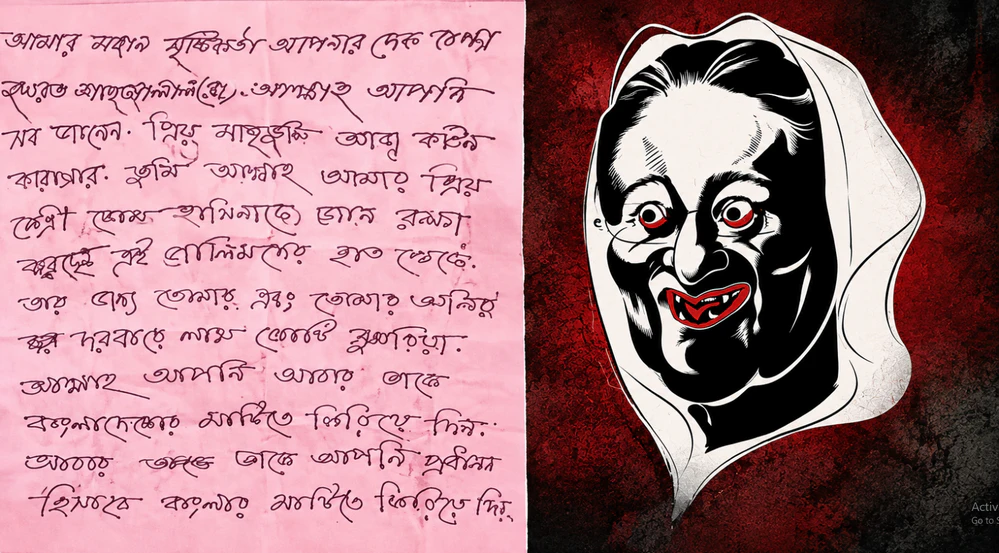 আমার মহান সৃষ্টিকর্তা আপনার নেক বান্দা
হযরত শাহজালাল(রঃ). আল্লাহ আপনি
সব জানেন. প্রিয় মাতৃভূমি আজ কঠিন
কারাগার. তুমি আল্লাহ আমার প্রিয়
নেত্রী শেখ হাসিনাকে জান রক্ষা
করছো এই জালিমদের হাত থেকে.
তার জন্য তোমার. এবং তোমার অলির
দরবারে লাখ কোটি শুকরিয়া.
আল্লাহ আপনি আবার তাকে
বাংলাদেশের মাটিতে ফিরিয়ে দিন.
আবার তাকে আপনি প্রধানমন্ত্রী
হিসাবে বাংলার মাটিতে ফিরিয়ে দিন.
Activ
Go to S